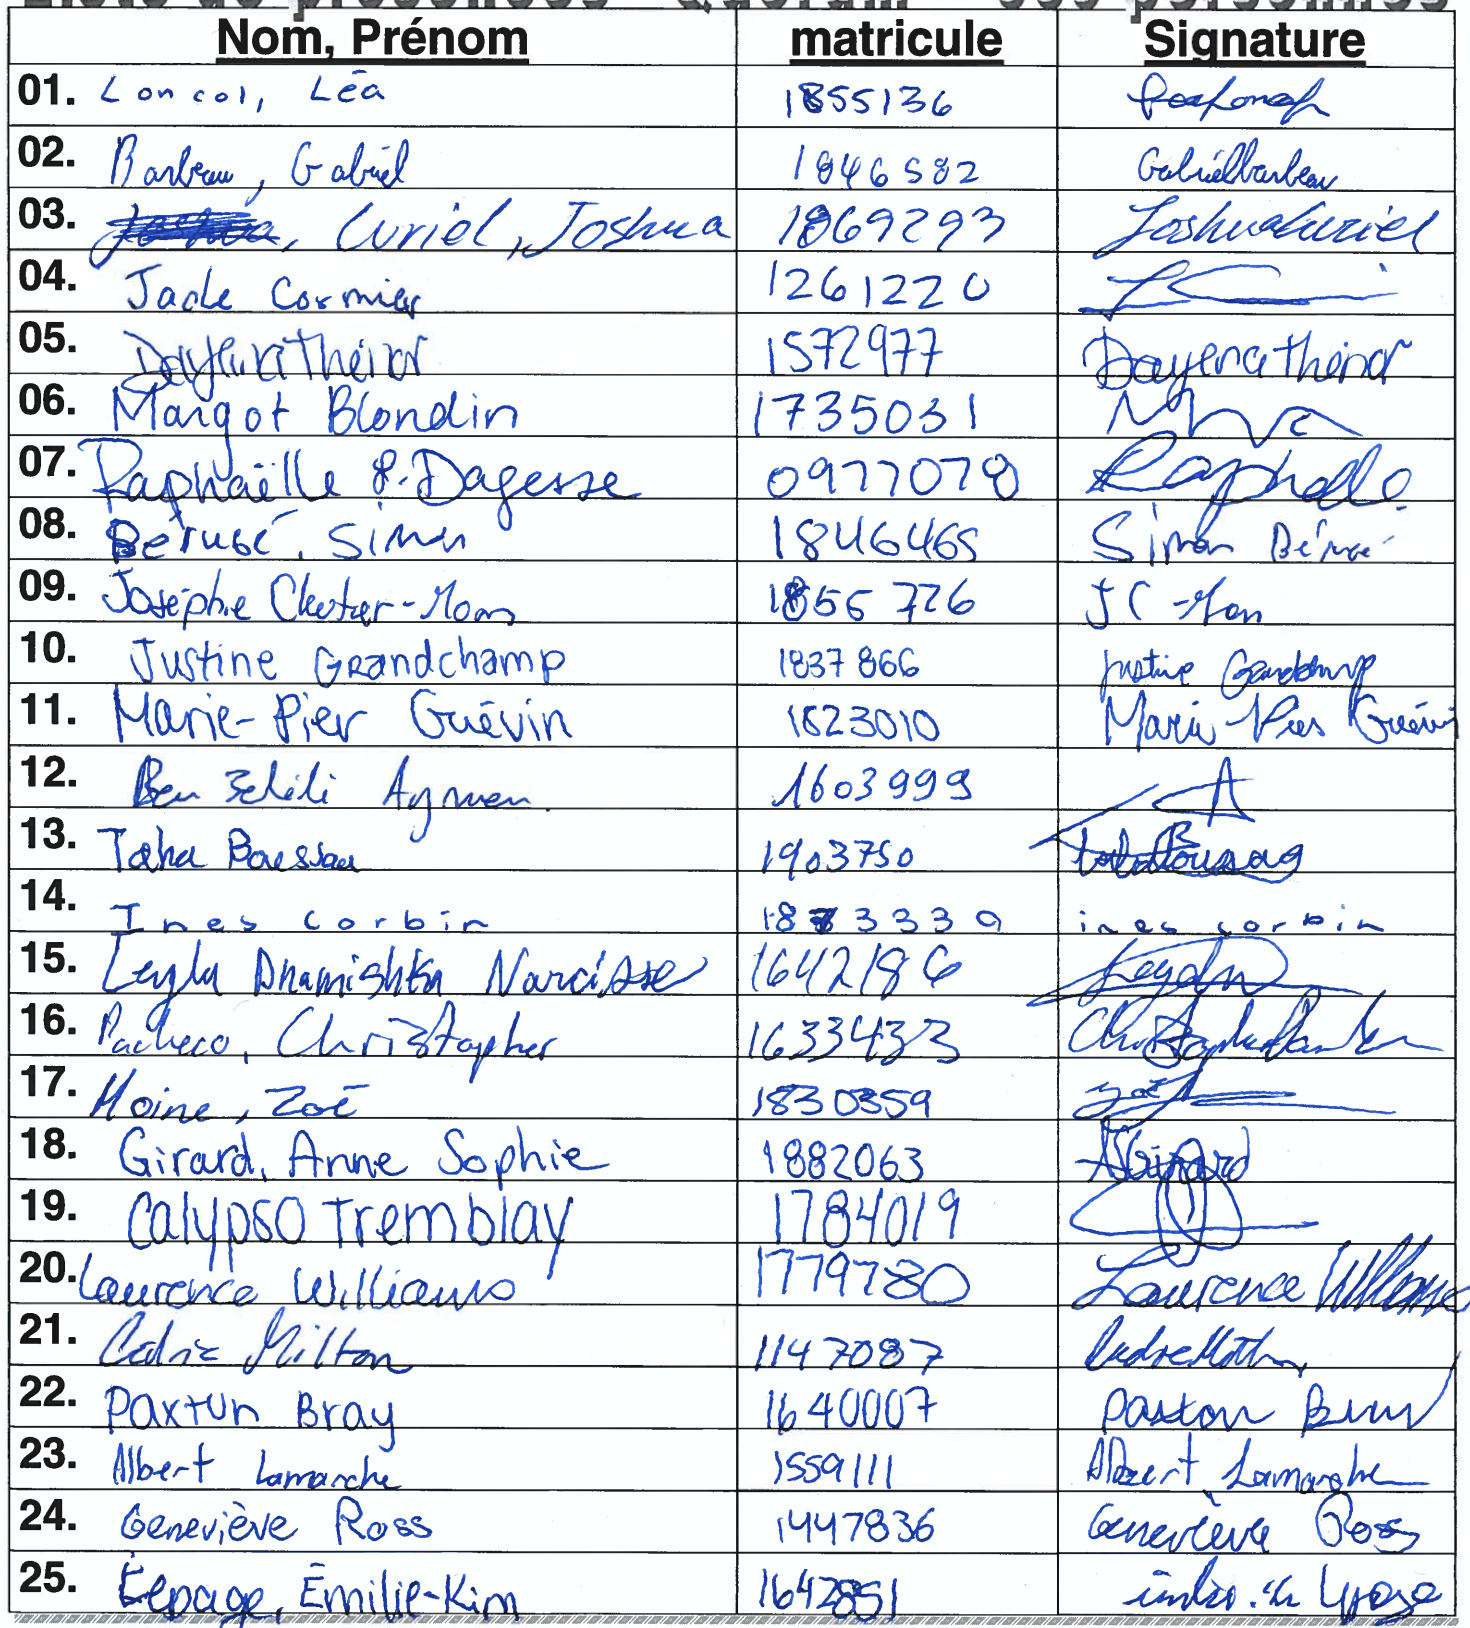 Liste de présences Quorum
Nom, Prénom matricule Signature
01. Loncol, Léa 1855136
02. Barbeau, Gabriel 1846582 Gabriel Barbeau
03. Curiel, Joshua 1869293 Joshua Curiel
04. Jade Cormier 1261220
05. Dayena Thénor 1572977 Dayena Thénor
06. Margot Blondin 1735031
07. Raphaëlle P.-Dagesse 0977078
08. Bérubé, Simon 1846465 Simon Bérubé
09. Joséphie 1855726 JC-Mon
10. Justine Grandchamp 1837866 Justine Grandchamp
11. Marie-Pier Guévin 1823010 Marie-Pier Guévin
12. Ben Aymen 1603999
13. Taha 1903750
14. Ines corbin 1873339 ines corbin
15. Leyla Dhamishka Narcisse 1642186
16. Pacheco, Christopher 1633433
17. Moine, Zoé 1830359 Zoé
18. Girard, Anne Sophie 1882063 ASGirard
19. Calypso Tremblay 1784019
20. Laurence Williams 1779780 Laurence Williams
21. Cédric Milton 1147087
22. Paxtun Bray 1640007 Paxton Bray
23. Albert Lamarche 1559111 Albert Lamarche
24. Geneviève Ross 1447836 Geneviève Ross
25. Lepage, Émilie-Kim 1642851